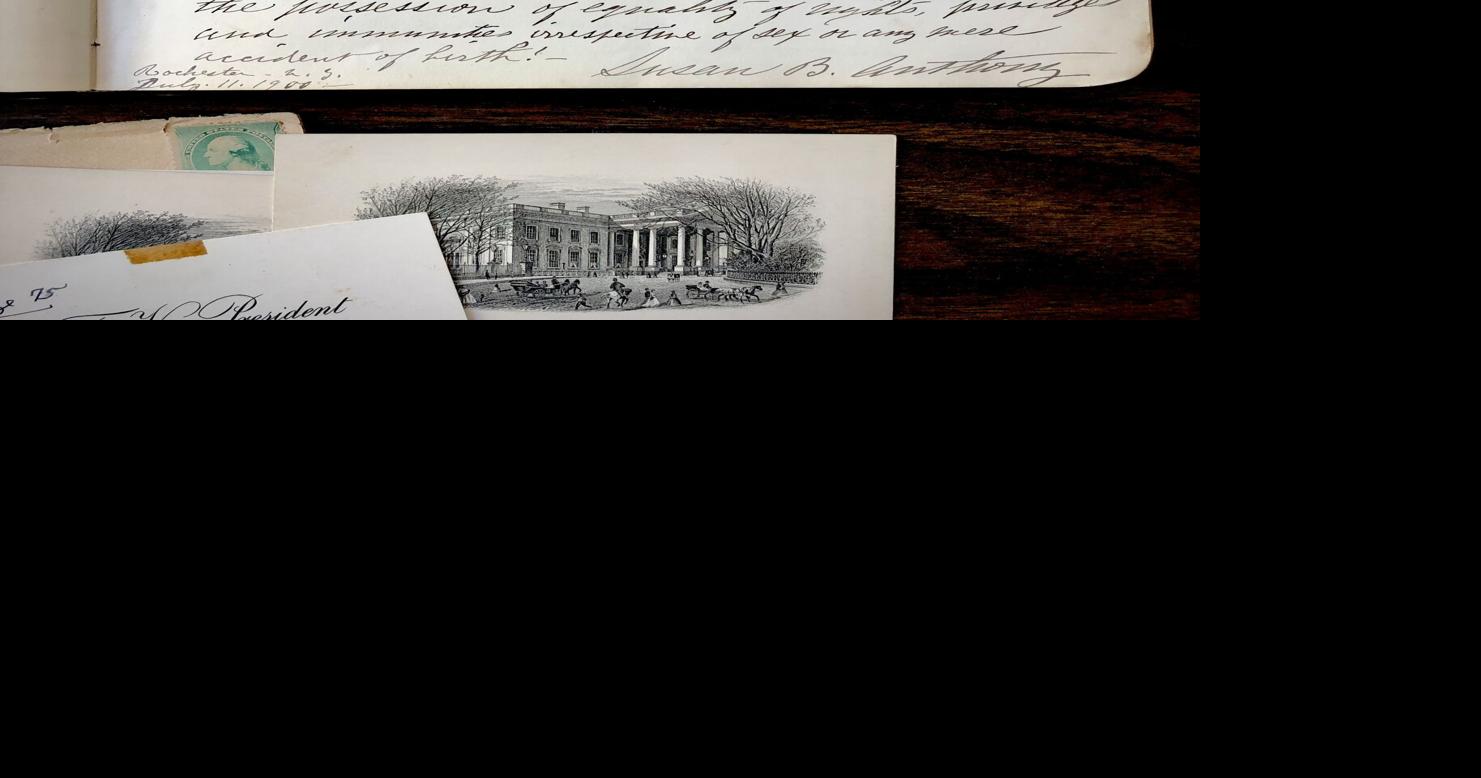 the possession of equality of rights, privilege
and immunities irrespective of sex or any mere
accident of birth! –
Susan B. Anthony
Rochester - N. Y.
July. 11. 1900 –
75
President